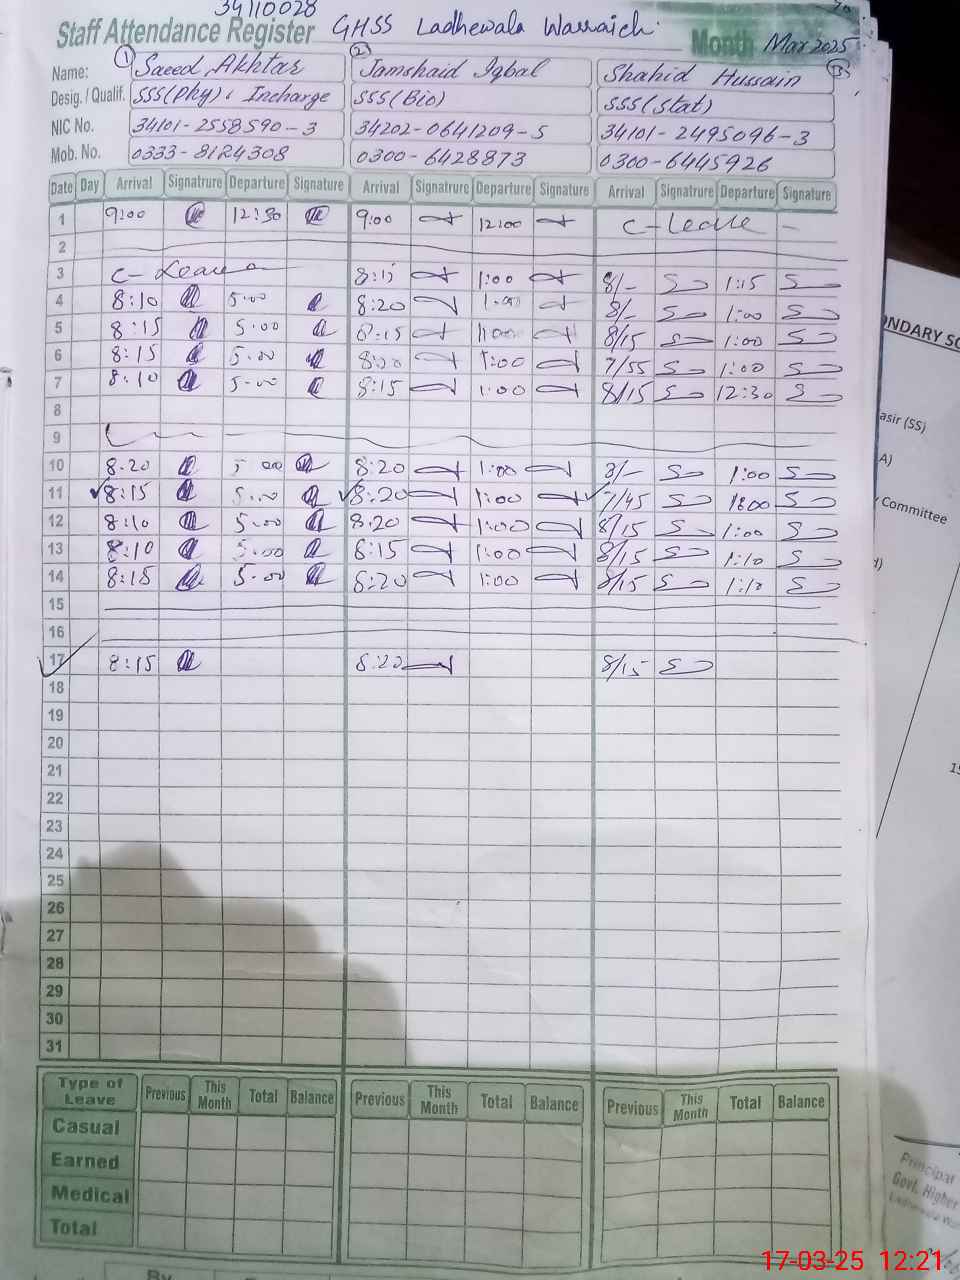 34110028
Staff Attendance Register GHSS Ladhewala Warraich Month Mar 2025
Name: 1 Saeed Akhtar 2 Jamshaid Iqbal 3 Shahid Hussain
Desig. / Qualif. SSS(Phy), Incharge SSS(Bio) SSS(Stat)
NIC No. 34101-2558590-3 34202-0641209-5 34101-2495096-3
Mob. No. 0333-8124308 0300-6428873 0300-6445926
Date Day Arrival Signatrure Departure Signature Arrival Signatrure Departure Signature Arrival Signatrure Departure Signature
1 9:00 12:30 9:00 12:00 C-Leave -
2
3 C-Leave 8:15 1:00 8/- 1:15
4 8:10 5:00 8:20 1:00 8/- 1:00
5 8:15 5:00 8:15 1:00 8/15 1:00
6 8:15 5:00 1:00 7/55 1:00
7 8:10 5:00 8:15 1:00 8/15 12:30
8
9
10 8:20 5:00 8:20 1:00 8/- 1:00
11 8:15 5:00 8:20 1:00 7/45 1:00
12 8:10 5:00 8:20 1:00 8/15 1:00
13 8:10 5:00 8:15 1:00 8/15 1:10
14 8:15 5:00 8:20 1:00 8/15 1:10
15
16
17 8:15 8:20 8/15
18
19
20
21
22
23
24
25
26
27
28
29
30
31
Type of Leave Previous This Month Total Balance Previous This Month Total Balance Previous This Month Total Balance
Casual
Earned
Medical
Total
By
NDARY SC
asir (SS)
A)
Committee
15
Principal
Govt. Higher
Ladhewala War
17-03-25 12:21